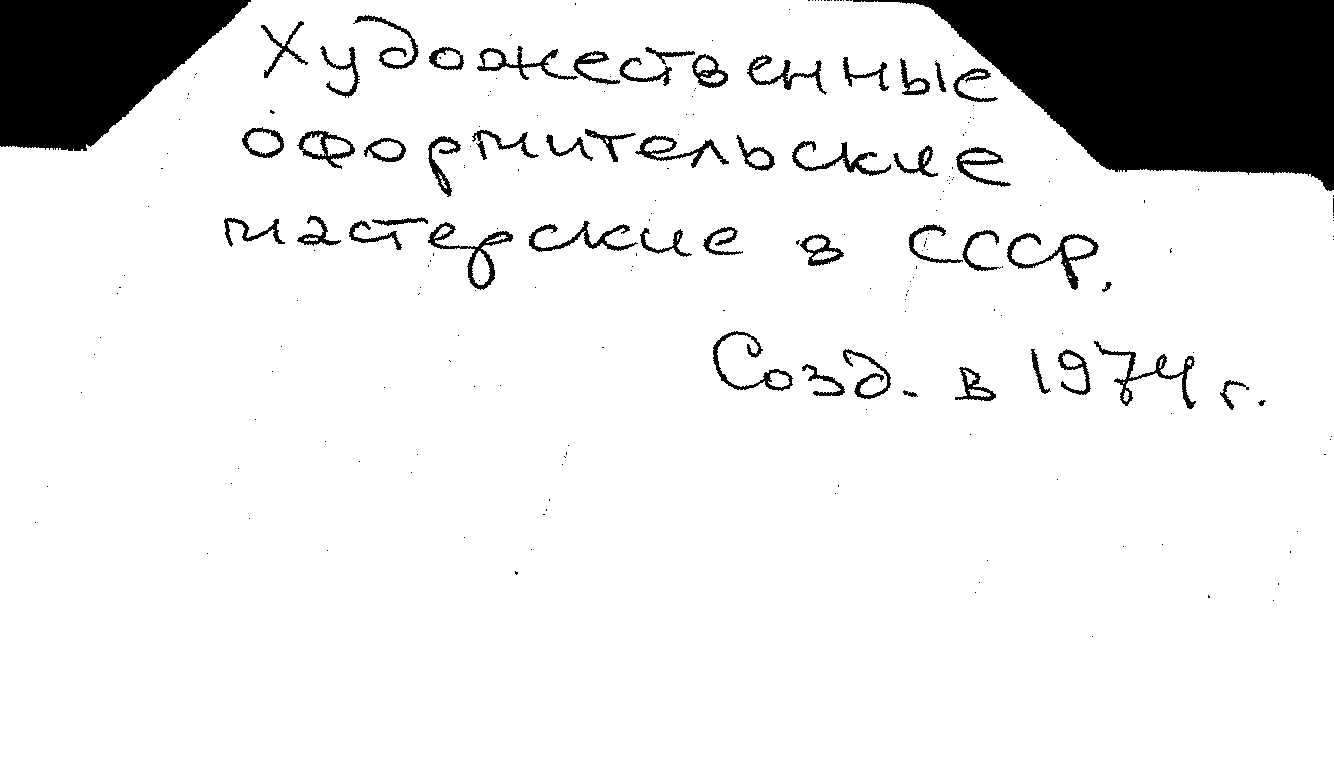 Художественные
оформительские
мастерские в СССР.
Созд. в 1974 г.